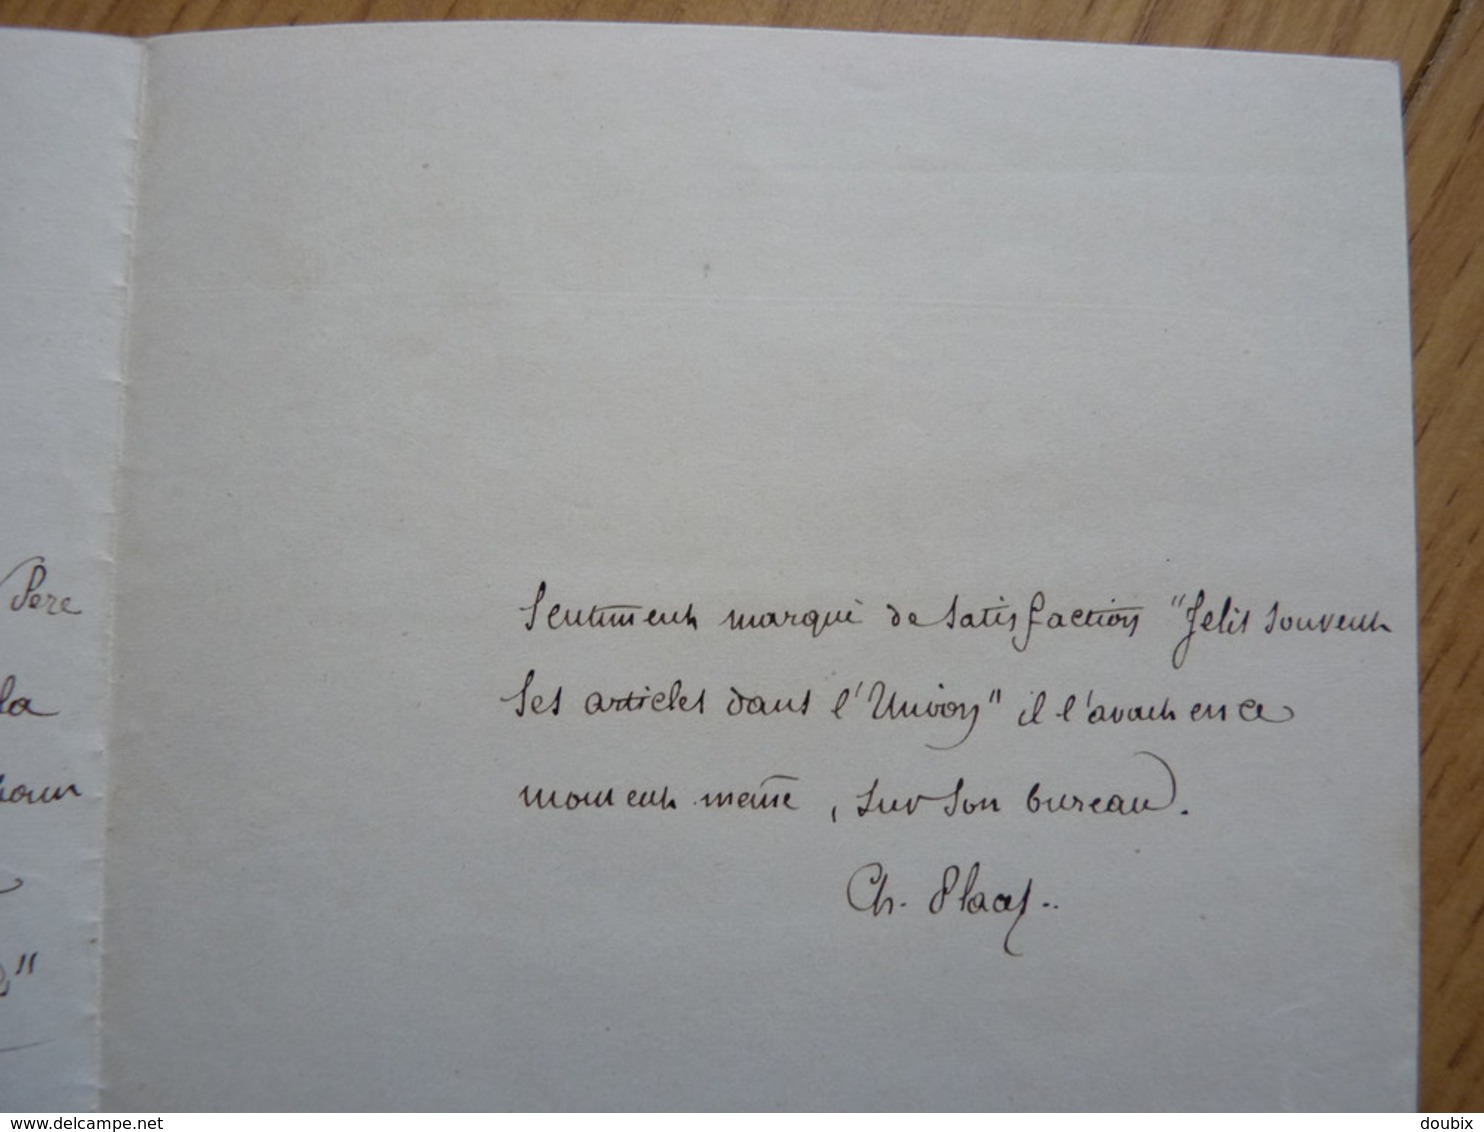 Père
la
sentiment marqué de satisfaction "Je lis souvent
ses articles dans l'Union" il l'avait en ce
moment même, sur son bureau.
Ch.
doubix